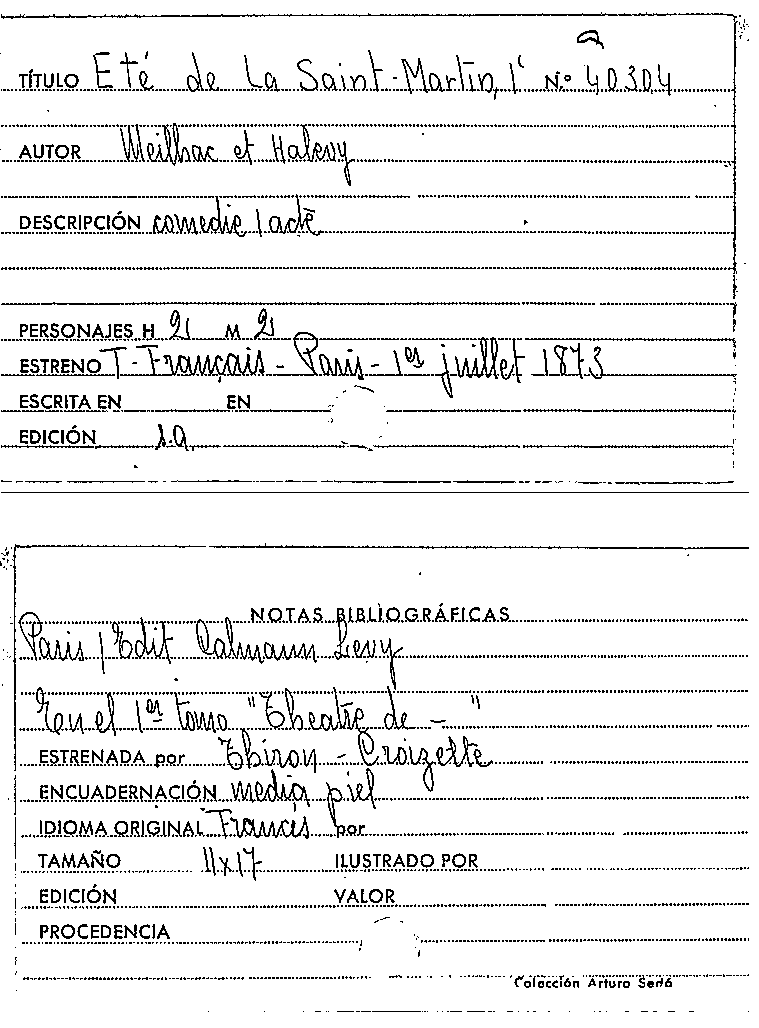 TÍTULO Eté de La Saint-Martin, l' N.º 40304
AUTOR Meilhac et Halevy
DESCRIPCIÓN comedie 1 acte
PERSONAJES H 2 M 2
ESTRENO T-Français - Paris - 1er juillet 1873
ESCRITA EN EN
EDICIÓN s.a.
NOTAS BIBLIOGRÁFICAS
Paris / Edit Calmann Levy
en el 1er tomo "Theatre de - "
ESTRENADA por Thiron - Croizette
ENCUADERNACIÓN media piel
IDIOMA ORIGINAL Frances por
TAMAÑO 11x17 ILUSTRADO POR
EDICIÓN VALOR
PROCEDENCIA
Colección Arturo Sedó